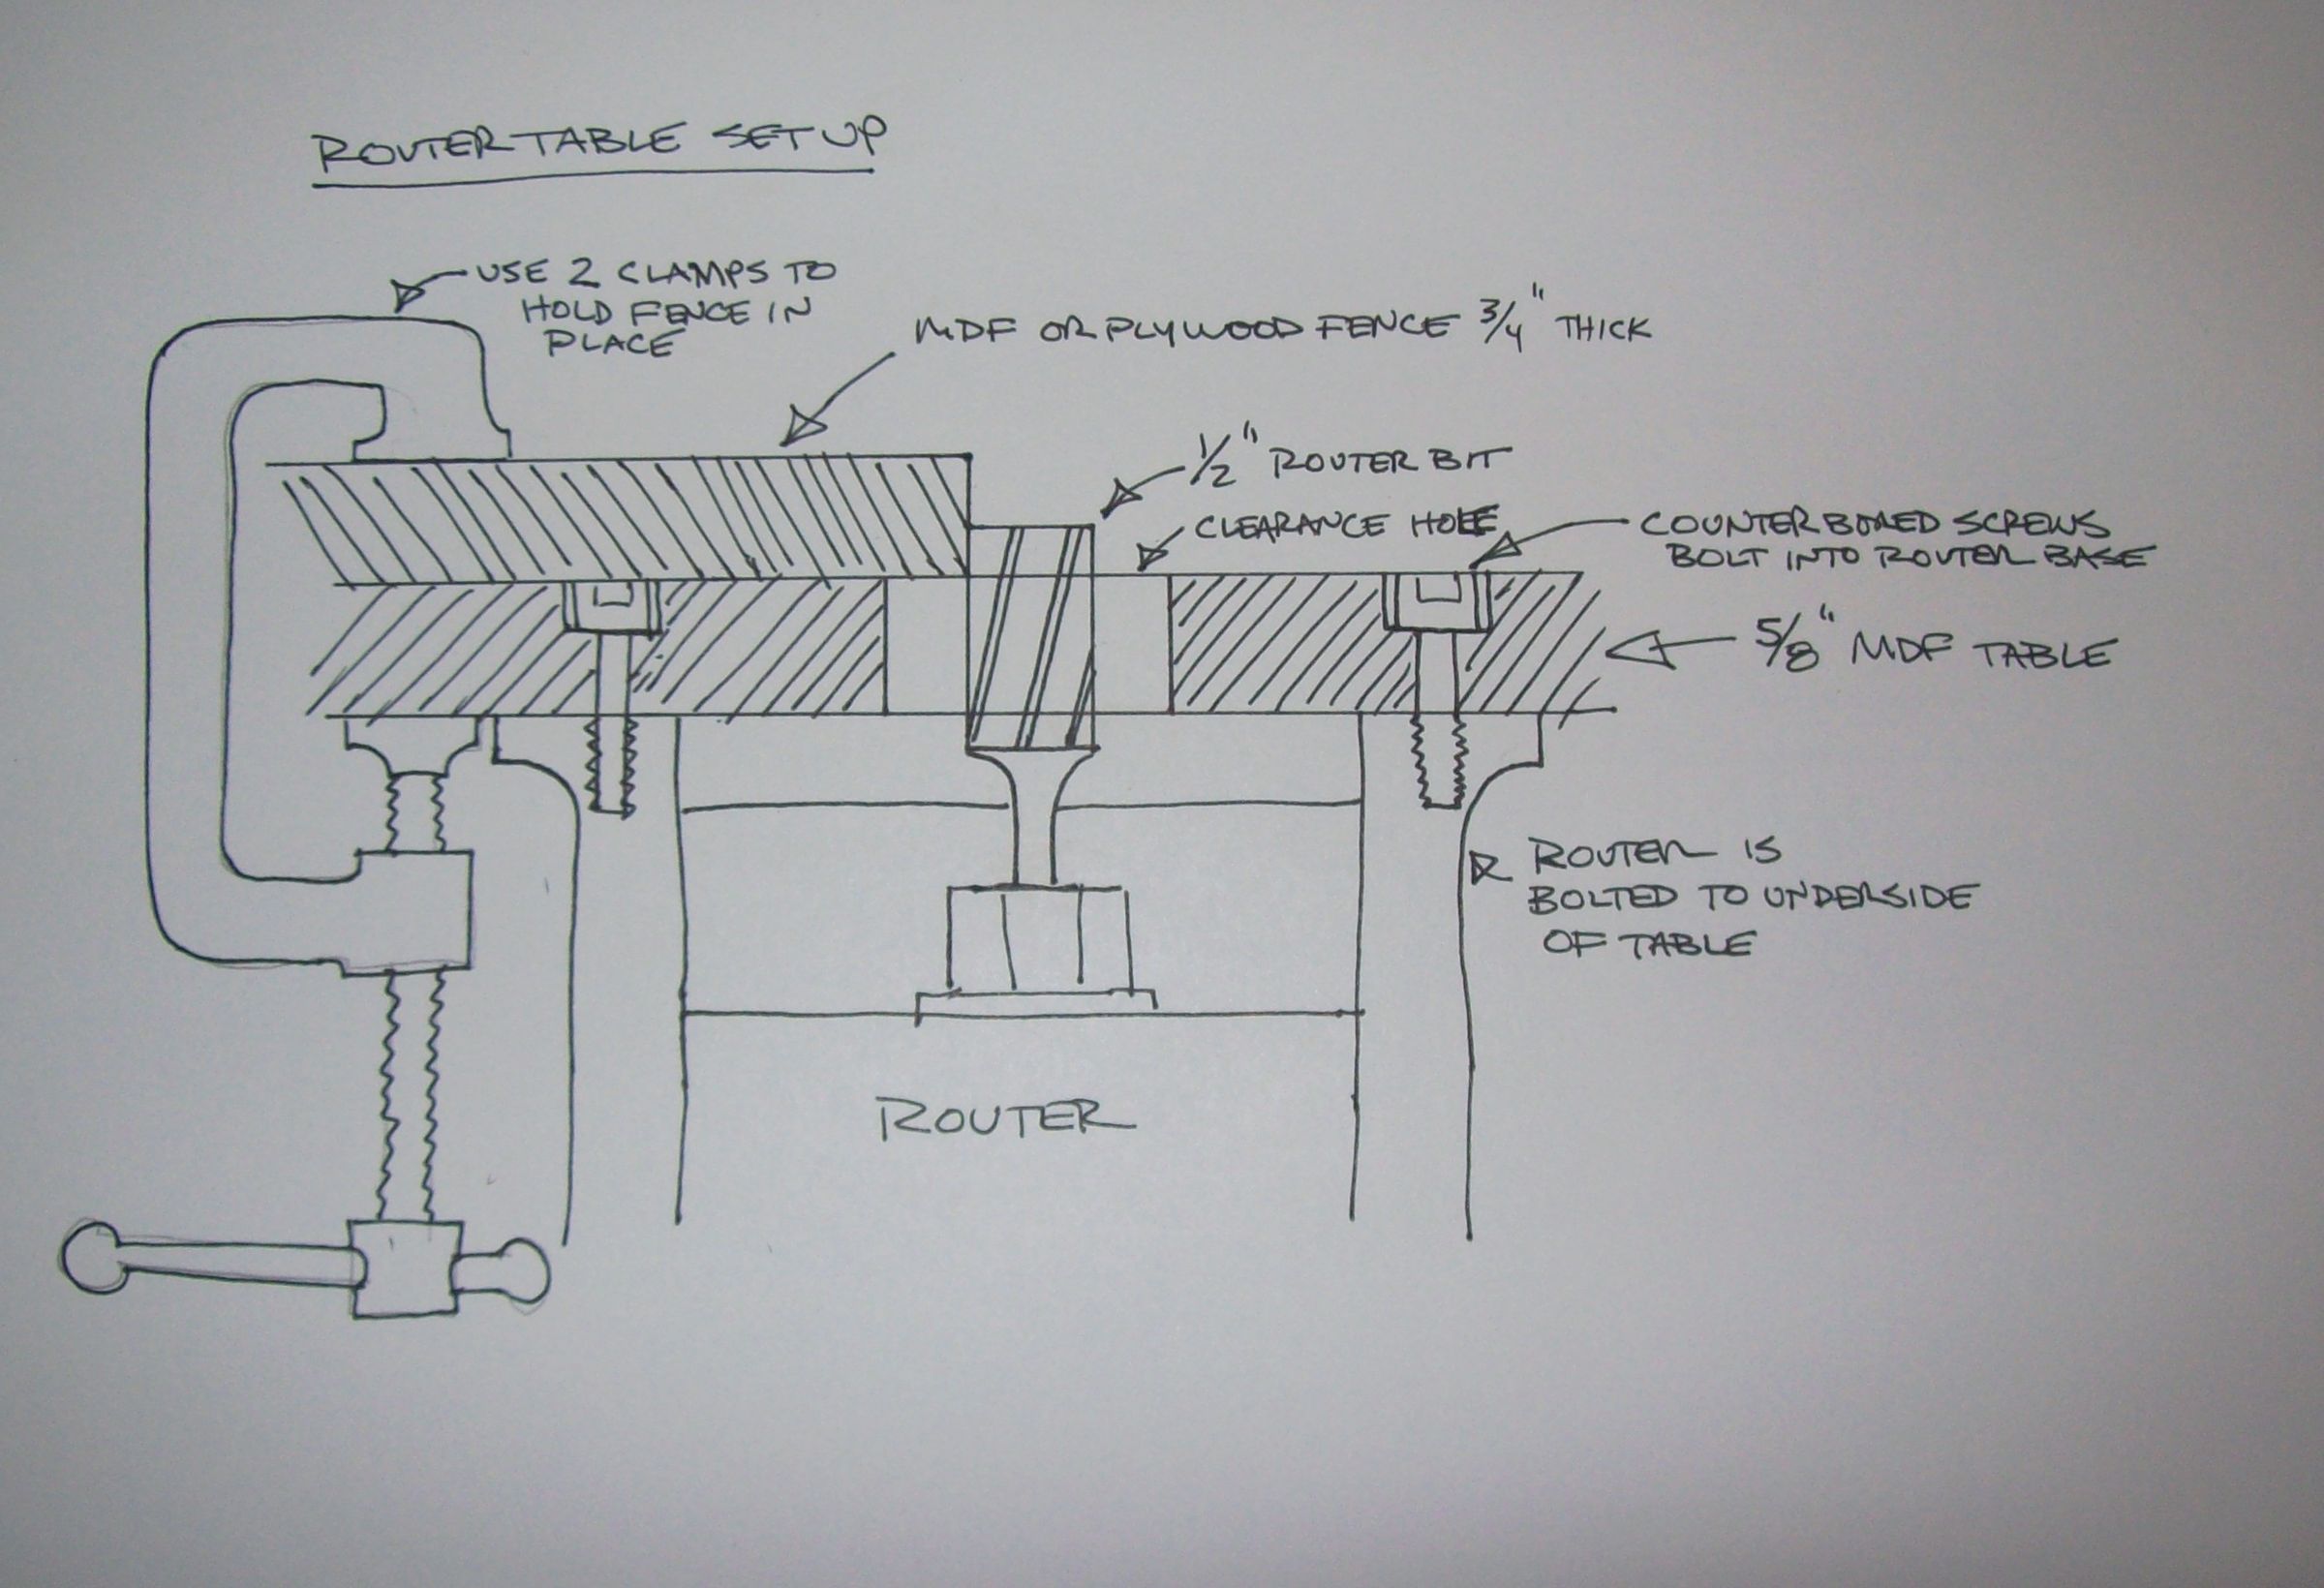 ROUTER TABLE SET UP
USE 2 CLAMPS TO
HOLD FENCE IN
PLACE
MDF OR PLYWOOD FENCE 3/4" THICK
1/2" ROUTER BIT
CLEARANCE HOLE
COUNTER BORED SCREWS
BOLT INTO ROUTER BASE
5/8" MDF TABLE
ROUTER IS
BOLTED TO UNDERSIDE
OF TABLE
ROUTER